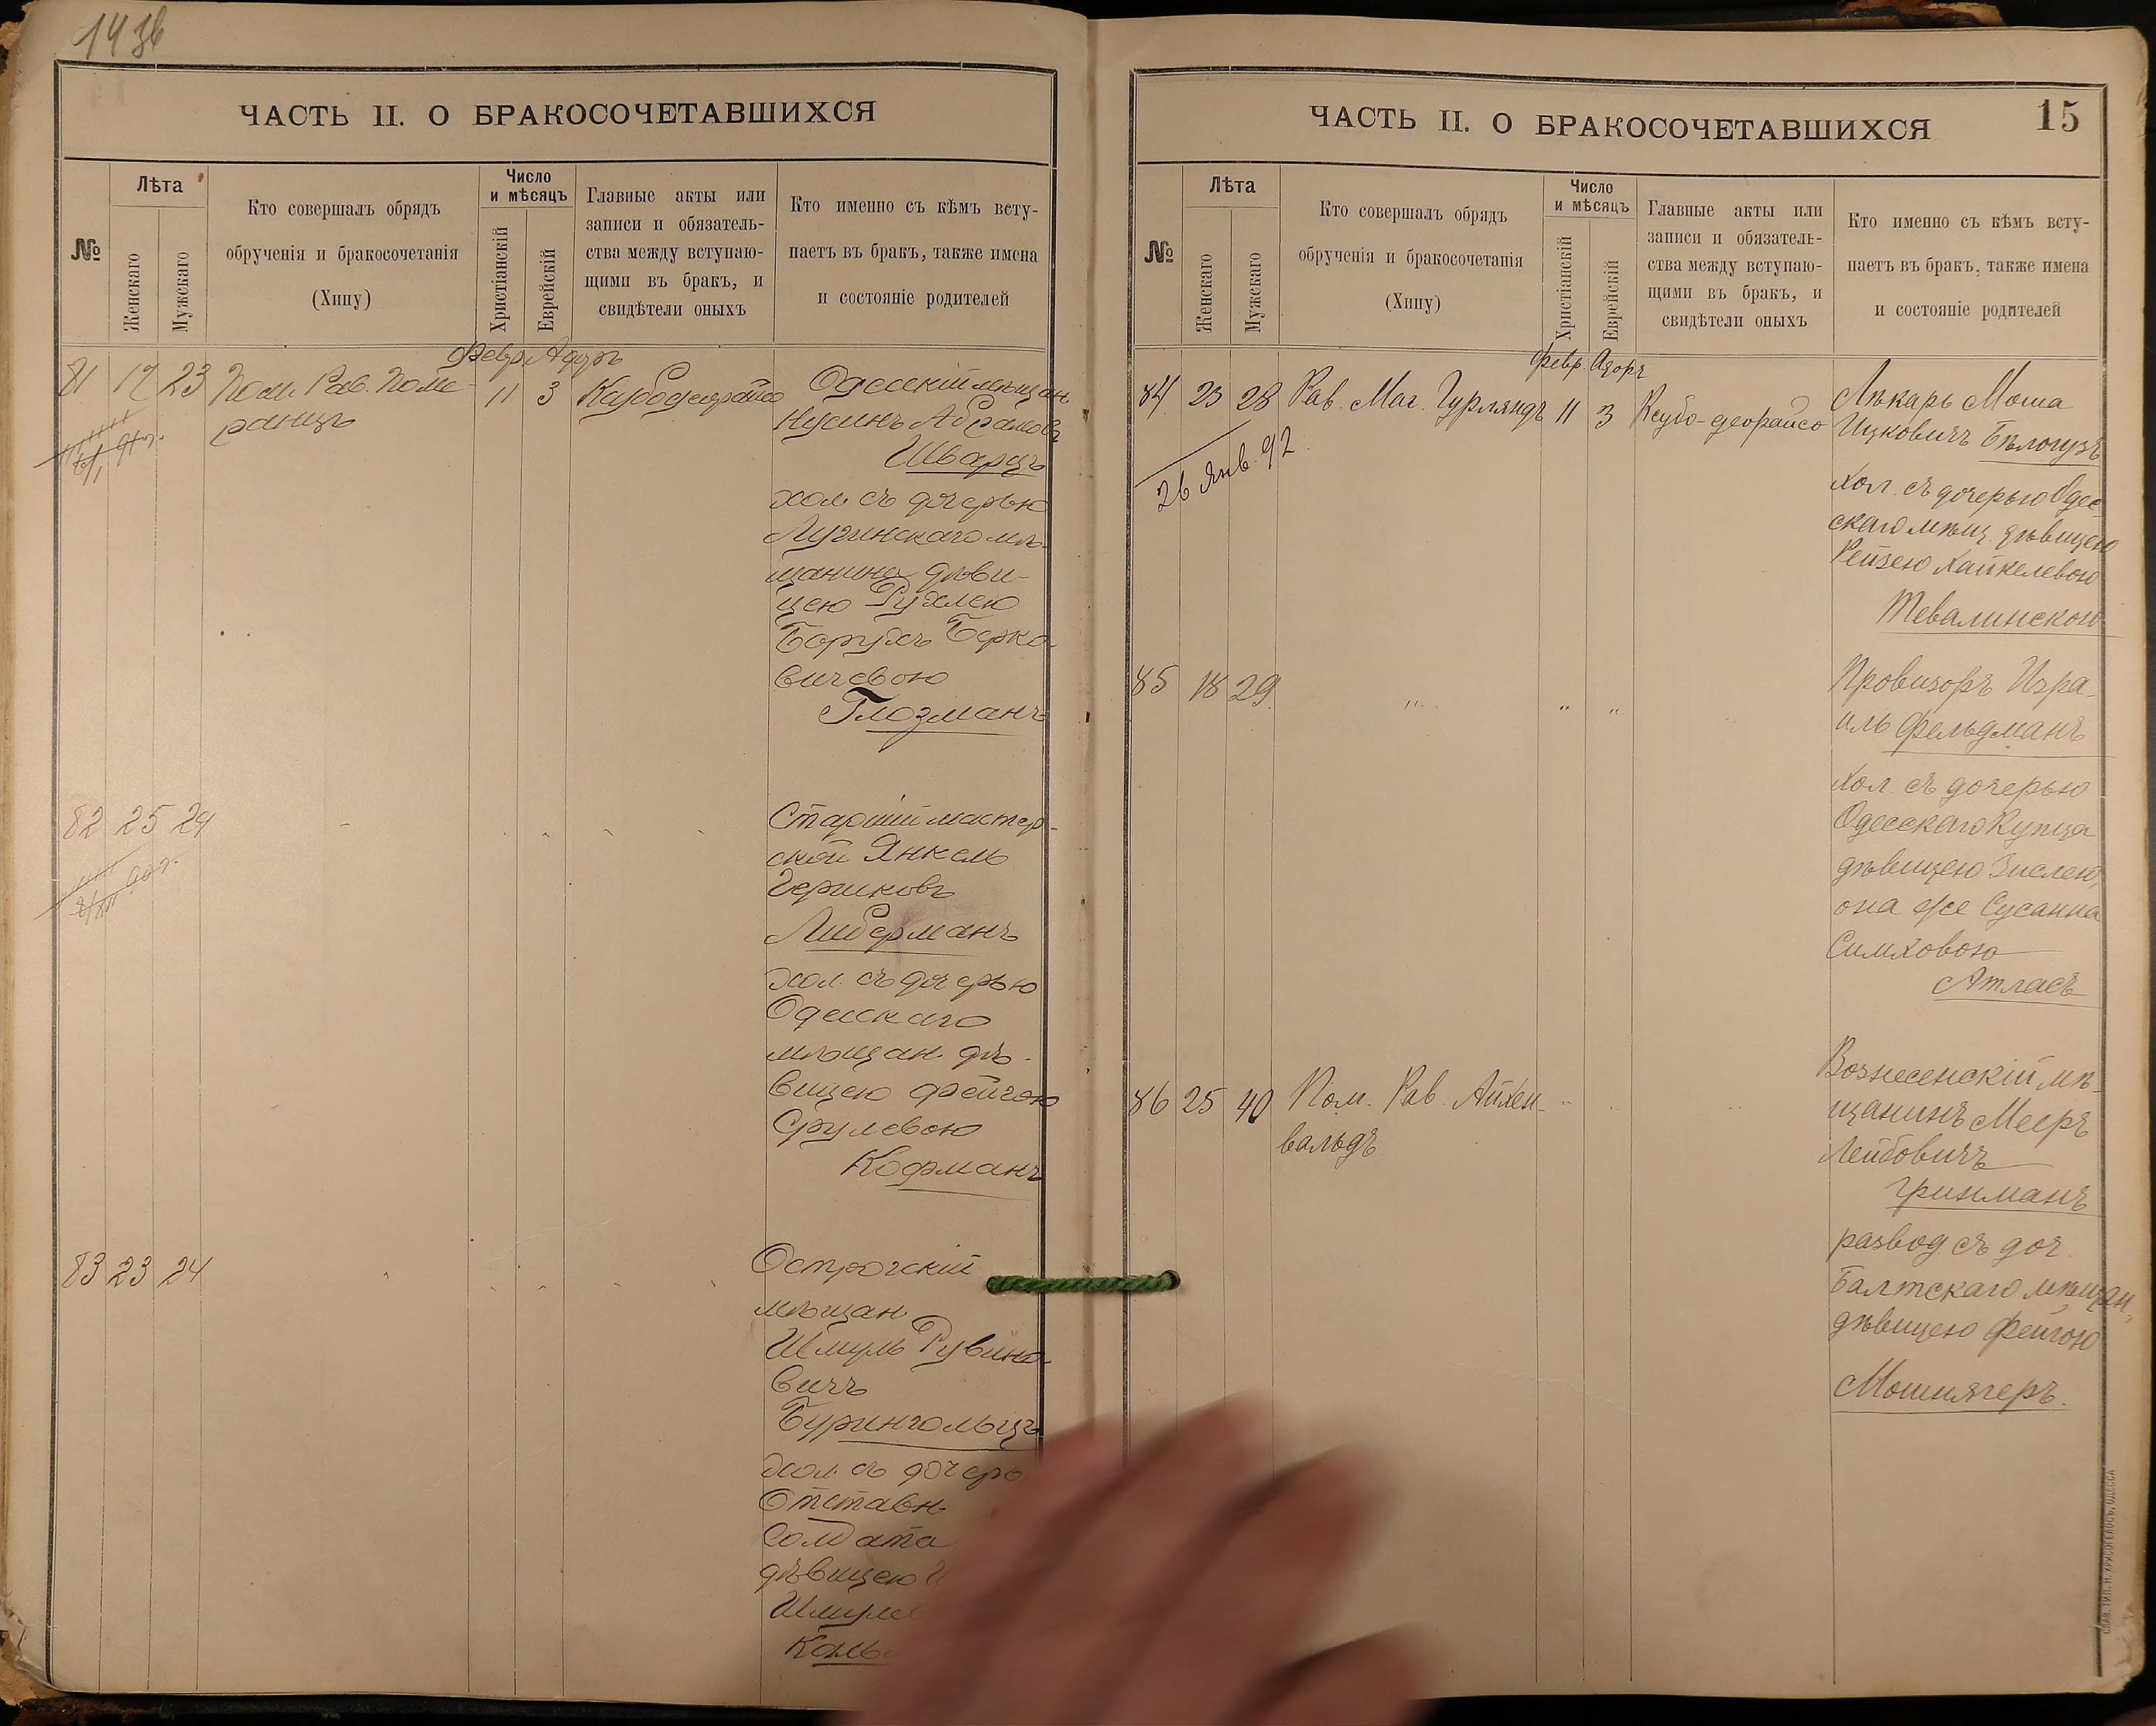 ЧАСТЬ II. О БРАКОСОЧЕТАВШИХСЯ
№
Лѣта
Женскаго
Мужскаго
Кто совершалъ обрядъ
обрученія и бракосочетанія
(Хипу)
Число
и мѣсяцъ
Христіанскій
Еврейскій
Главные акты или
записи и обязатель-
ства между вступаю-
щими въ бракъ, и
свидѣтели оныхъ
Кто именно съ кѣмъ всту-
паетъ въ бракъ, также имена
и состояніе родителей
Февр. Адаръ
81 17 23 Пом. Рав. Поме-
ранцъ
11 3
Одесскій мѣщан.
Нусинъ Абрамовъ
Шварцъ
хол. съ дочерью
Лугинскаго мѣ-
щанина дѣви-
цею Рухлею
Борухъ Берко
вичевою
Глозманъ
82 25 29
Старшій мастер-
ской Янкель
Гершковъ
Либерманъ
хол. съ дочерью
Одесскаго
мѣщан. дѣ-
вицею Фейгою
Срулевою
Кофманъ
83 23 24
Острогскій
мѣщан.
Шмуль Рувино
вичъ
Бурингольцъ
хол. съ дочерь
Отставн
Солдата
дѣвицею
Шмулев
ЧАСТЬ II. О БРАКОСОЧЕТАВШИХСЯ
15
№
Лѣта
Женскаго
Мужскаго
Кто совершалъ обрядъ
обрученія и бракосочетанія
(Хипу)
Число
и мѣсяцъ
Христіанскій
Еврейскій
Главные акты или
записи и обязатель-
ства между вступаю-
щими въ бракъ, и
свидѣтели оныхъ
Кто именно съ кѣмъ всту-
паетъ въ бракъ, также имена
и состояніе родителей
Февр. Адаръ
84 23 28 Рав. Маг. Гурляндъ 11 3 Ксубо-деорайсо
26 Янв. 92
Лѣкарь Моша
Ицковичъ Бѣлогузъ
хол. съ дочерью Одес-
скаго мѣщ. дѣвицею
Рейзею Хайкелевою
Тевалинскою
85 18 29 " " "
Провизоръ Изра-
иль Фельдманъ
хол. съ дочерью
Одесскаго Купца
дѣвицею Зислею,
она же Сусанна
Симховою
Атласъ
86 25 40 Пом. Рав. Айхен-
вальдъ
Вознесенскій мѣ-
щанинъ Мееръ
Лейбовичъ
Гринманъ
развод. съ доч.
Балтскаго мѣщан.
дѣвицею Фейгою
Мошнягеръ.